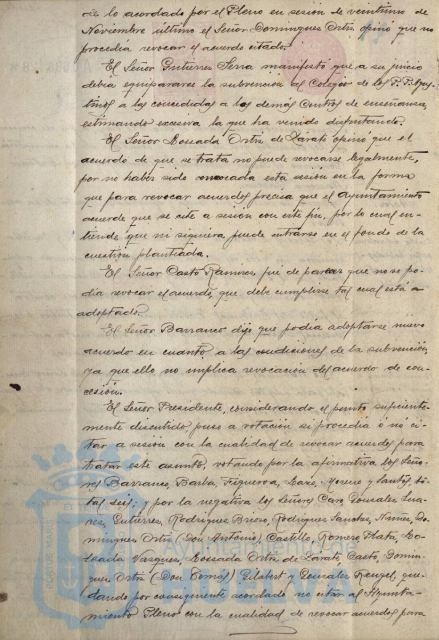 de lo acordado por el Pleno en sesión de veintiuno de
Noviembre último el Señor Domínguez Ortiz opinó que no
procedía revocar el acuerdo citado.
El Señor Gutierrez Serra manifestó que a su juicio
debía equipararse la subvención al Colegio de los P.P. Agus-
tinos a las concedidas a los demás Centros de enseñanza,
estimando excesiva la que ha venido disfrutando.
El Señor Losada Ortiz de Zárate opinó que el
acuerdo de que se trata no puede revocarse legalmente,
por no haber sido convocada esta sesión en la forma
que para revocar acuerdos precisa que el Ayuntamiento
acuerde que se cite a sesión con este fin, por lo cual en-
tiende que ni siquiera puede entrarse en el fondo de la
cuestión planteada.
El Señor Casto Ramirez fué de parecer que no se po-
día revocar el acuerdo, que debe cumplirse tal cual está a-
doptado.
El Señor Barranco dijo que podía adoptarse nuevo
acuerdo en cuanto a las condiciones de la subvención,
ya que ello no implica revocación del acuerdo de con-
cesión.
El Señor Presidente, considerando el punto suficiente-
mente discutido puso a votación si procedía ó no ci-
tar a sesión con la cualidad de revocar acuerdos para
tratar este asunto, votando por la afirmativa los Seño-
res Barranco, Barba, Figueroa, Moreno y Santos to-
tal seis; y por la negativa los Señores Caro, Gonzalez Sua-
rez, Gutierrez, Rodriguez Rodriguez Sanchez, Nuñez, Do-
minguez Ortiz (Don Antonio), Castillo, Romero, Plata,
Vazquez, Lossada Ortiz de Zárate, Casto, Domin-
guez Ortiz (Don Tomás) Gilabert y Gonzalez Rangel, que-
dando por consiguiente acordado no citar al Ayunta-
miento Pleno con la cualidad de revocar acuerdos para